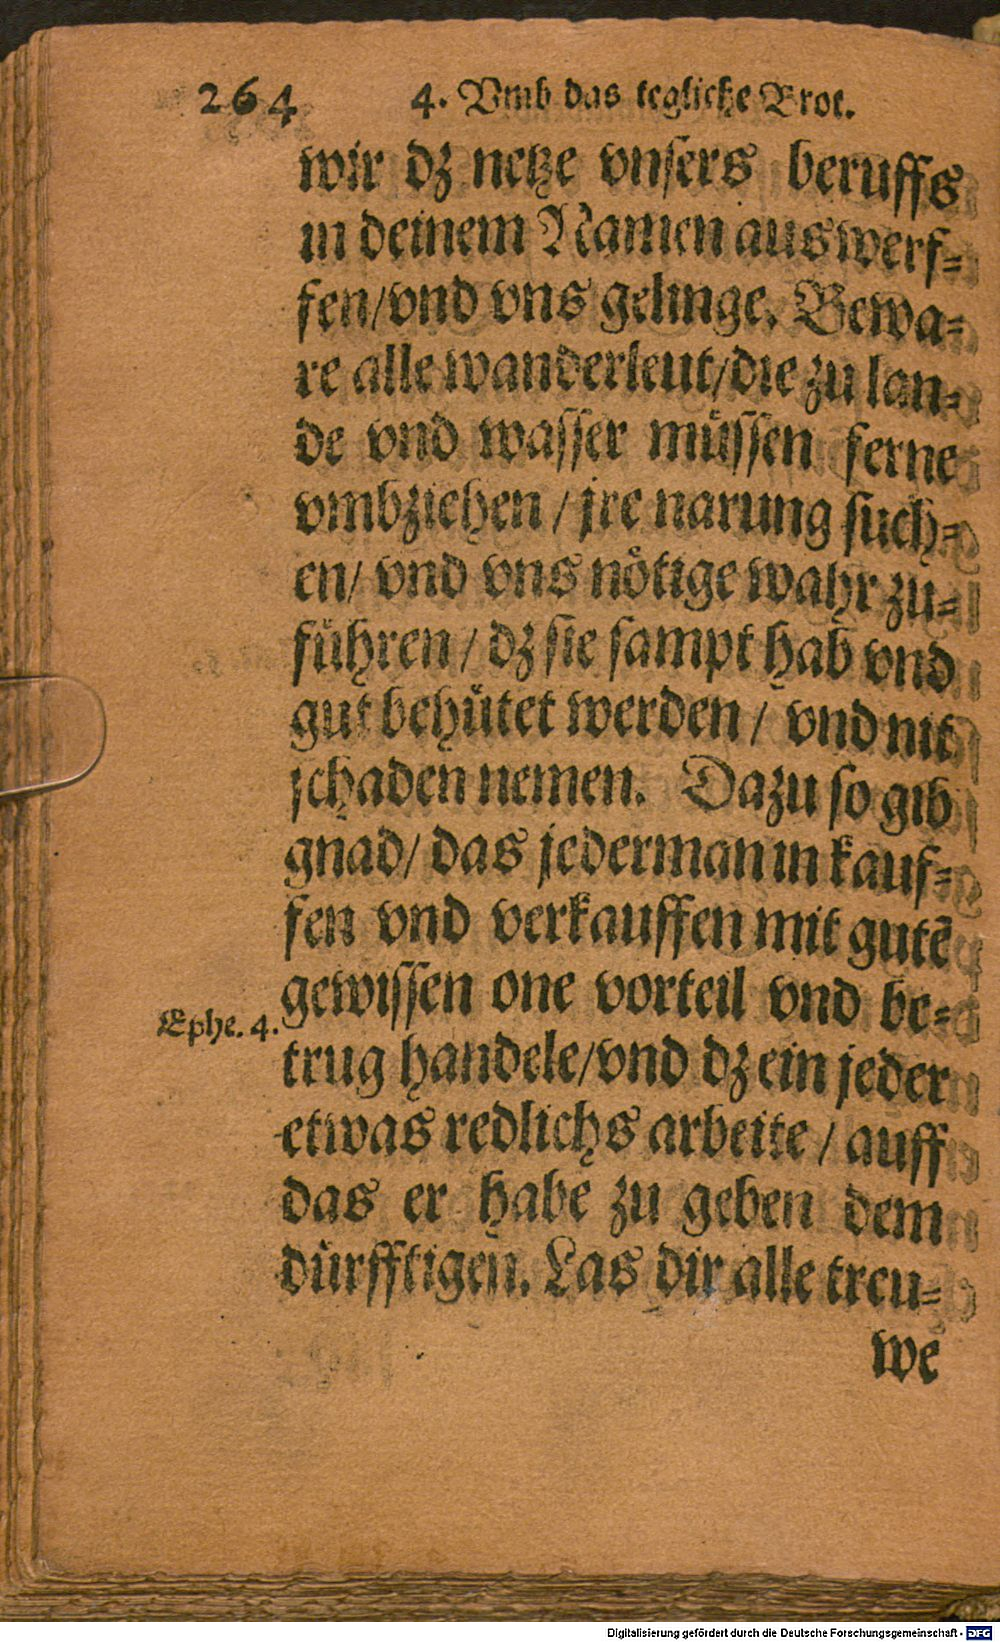 264 4. Vmb das tegliche Brot.
wir dz netze vnsers beruffs
in deinem Namen auswerf=
fen/vnd vns gelinge. Bewa=
re alle wanderleut/die zu lan=
de vnd wasser müssen ferne
vmbziehen / jre narung such=
en/ vnd vns nötige wahr zu=
führen / dz sie sampt hab vnd
gut behütet werden / vnd nit
schaden nemen. Dazu so gib
gnad/ das jederman in kauf=
fen vnd verkauffen mit gutē
gewissen one vorteil vnd be=
Ephe. 4.
trug handele/vnd dz ein jeder
etwas redlichs arbeite / auff
das er habe zu geben dem
dürfftigen. Las dir alle treu=
we
Digitalisierung gefördert durch die Deutsche Forschungsgemeinschaft - DFG